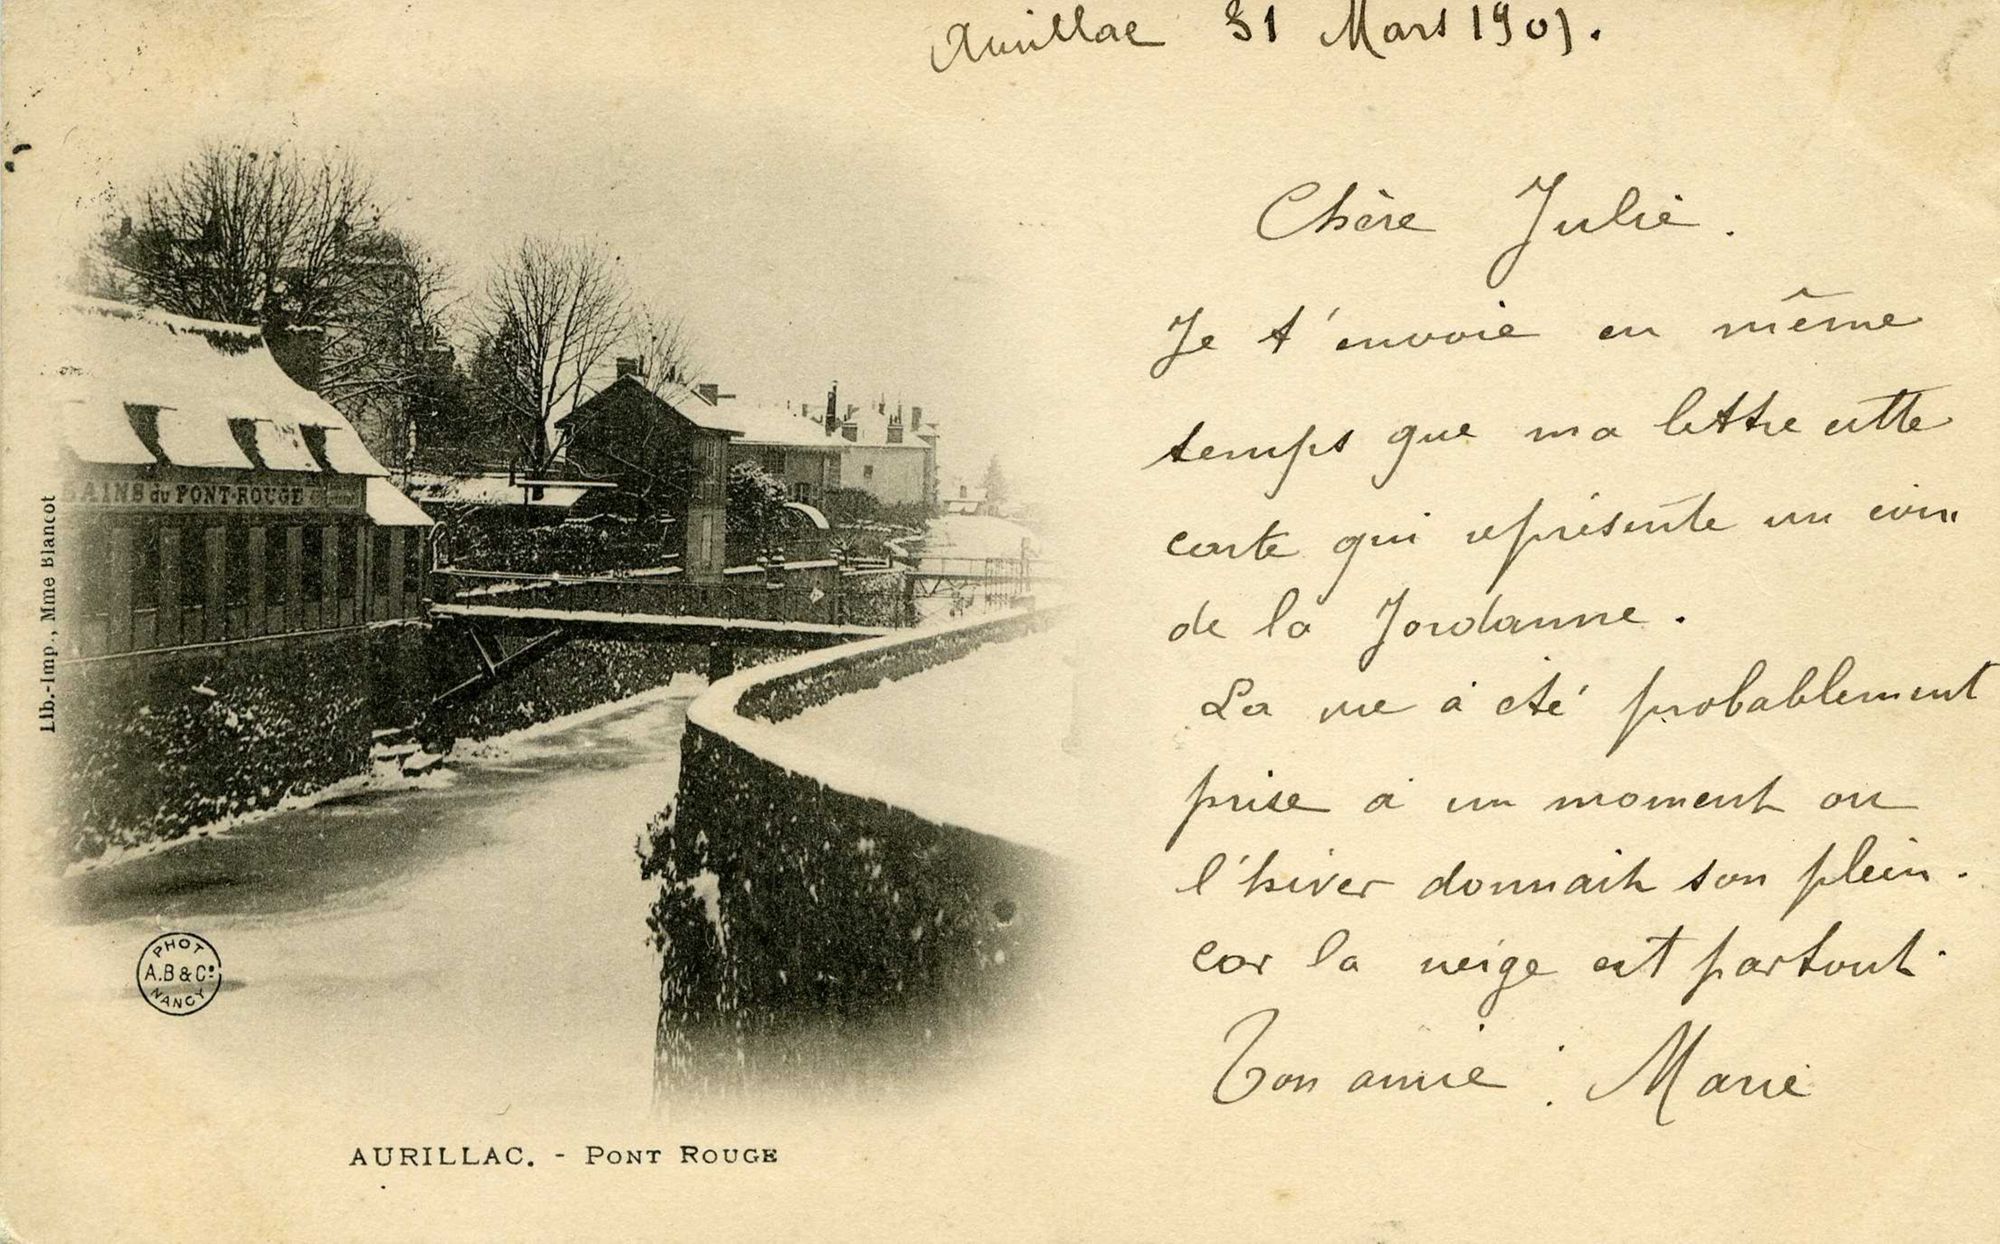 Aurillac 31 Mars 1901.
Chère Julie.
Je t'envoie en même
temps que ma lettre cette
carte qui représente un coin
de la Jordanne.
La vue à été probablement
prise a un moment ou
l'hiver donnait son plein.
car la neige est partout.
Ton amie : Marie
BAINS du PONT-ROUGE
Lib.-Imp., Mme Blancot
PHOT
A.B & Cie
NANCY
AURILLAC. - PONT ROUGE